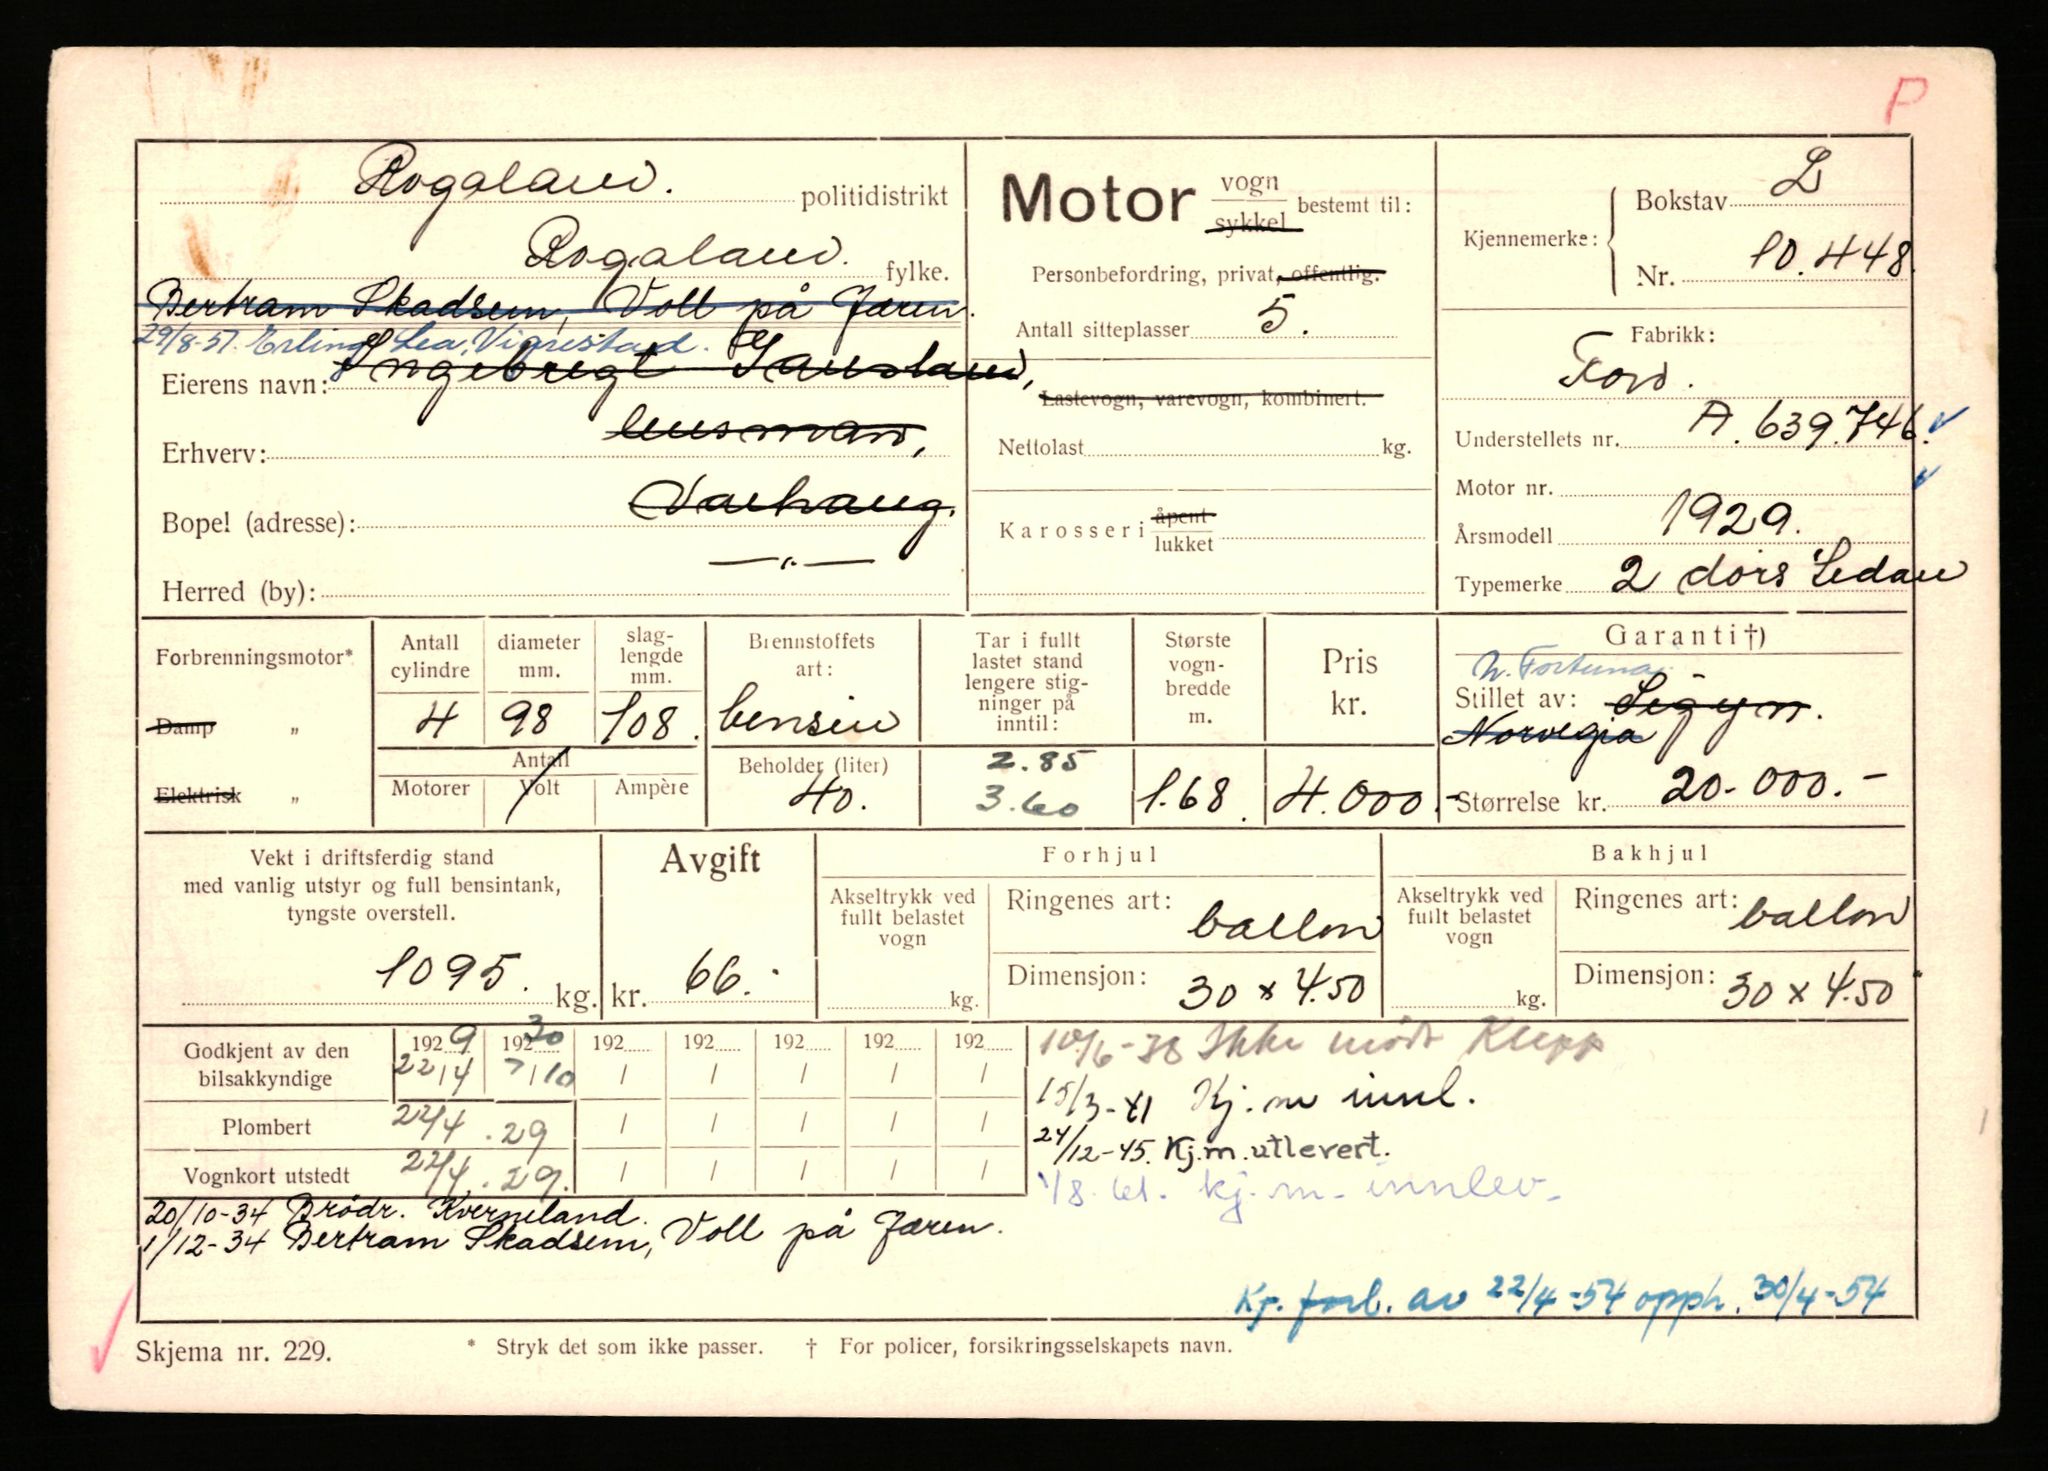 P
Rogaland. politidistrikt
Rogaland. fylke.
Bertram Skadsem, Voll på Jæren.
29/8-57. Erling Lea, Vigrestad.
Eierens navn: Ingebregt
Erhverv: husmann,
Bopel (adresse): Varhaug.
Herred (by): — „ —
Motor vogn sykkel bestemt til:
Personbefordring, privat, offentlig.
Antall sitteplasser 5.
Lastevogn, varevogn, kombinert.
Nettolast kg.
Karosseri åpent lukket
Kjennemerke: Bokstav L
Nr. 10.448.
Fabrikk:
Ford.
Understellets nr. A. 639.746.
Motor nr.
Årsmodell 1929.
Typemerke 2 dørs Sedan
Forbrenningsmotor*
Damp „
Elektrisk „
Antall cylindre
4
diameter mm.
98
slag-lengde mm.
108.
Antall
Motorer Volt Ampère
Brennstoffets art:
bensin
Beholder (liter)
40.
Tar i fullt
lastet stand
lengere stig-
ninger på
inntil:
2.85
3.60
Største
vogn-
bredde
m.
1.68.
Pris
kr.
4.000.-
Garanti†)
N. Fortuna
Stillet av: Sigyn.
Norvegia
Størrelse kr. 20.000.-
Vekt i driftsferdig stand
med vanlig utstyr og full bensintank,
tyngste overstell.
1095. kg.
Avgift
kr. 66.-
Forhjul
Akseltrykk ved
fullt belastet
vogn
kg.
Ringenes art: ballon
Dimensjon: 30 x 4.50
Bakhjul
Akseltrykk ved
fullt belastet
vogn
kg.
Ringenes art: ballon
Dimensjon: 30 x 4.50"
Godkjent av den
bilsakkyndige
1929 19230 192 192 192 192 192
22/4 7/10 / / / / /
Plombert 22/4.29 / / / / /
Vognkort utstedt 22/4.29. / / / / /
10/6-38 Ikke mødt Klepp
15/3-41 Kj.m innl.
24/12-45. Kj.m.utlevert.
1/8.61. kj.m. innlev.
20/10-34 Brødr. Kverneland.
1/12-34 Bertram Skadsem, Voll på Jæren.
Kj. forb. av 22/4-54 opph. 30/4-54
Skjema nr. 229.
* Stryk det som ikke passer. † For policer, forsikringsselskapets navn.